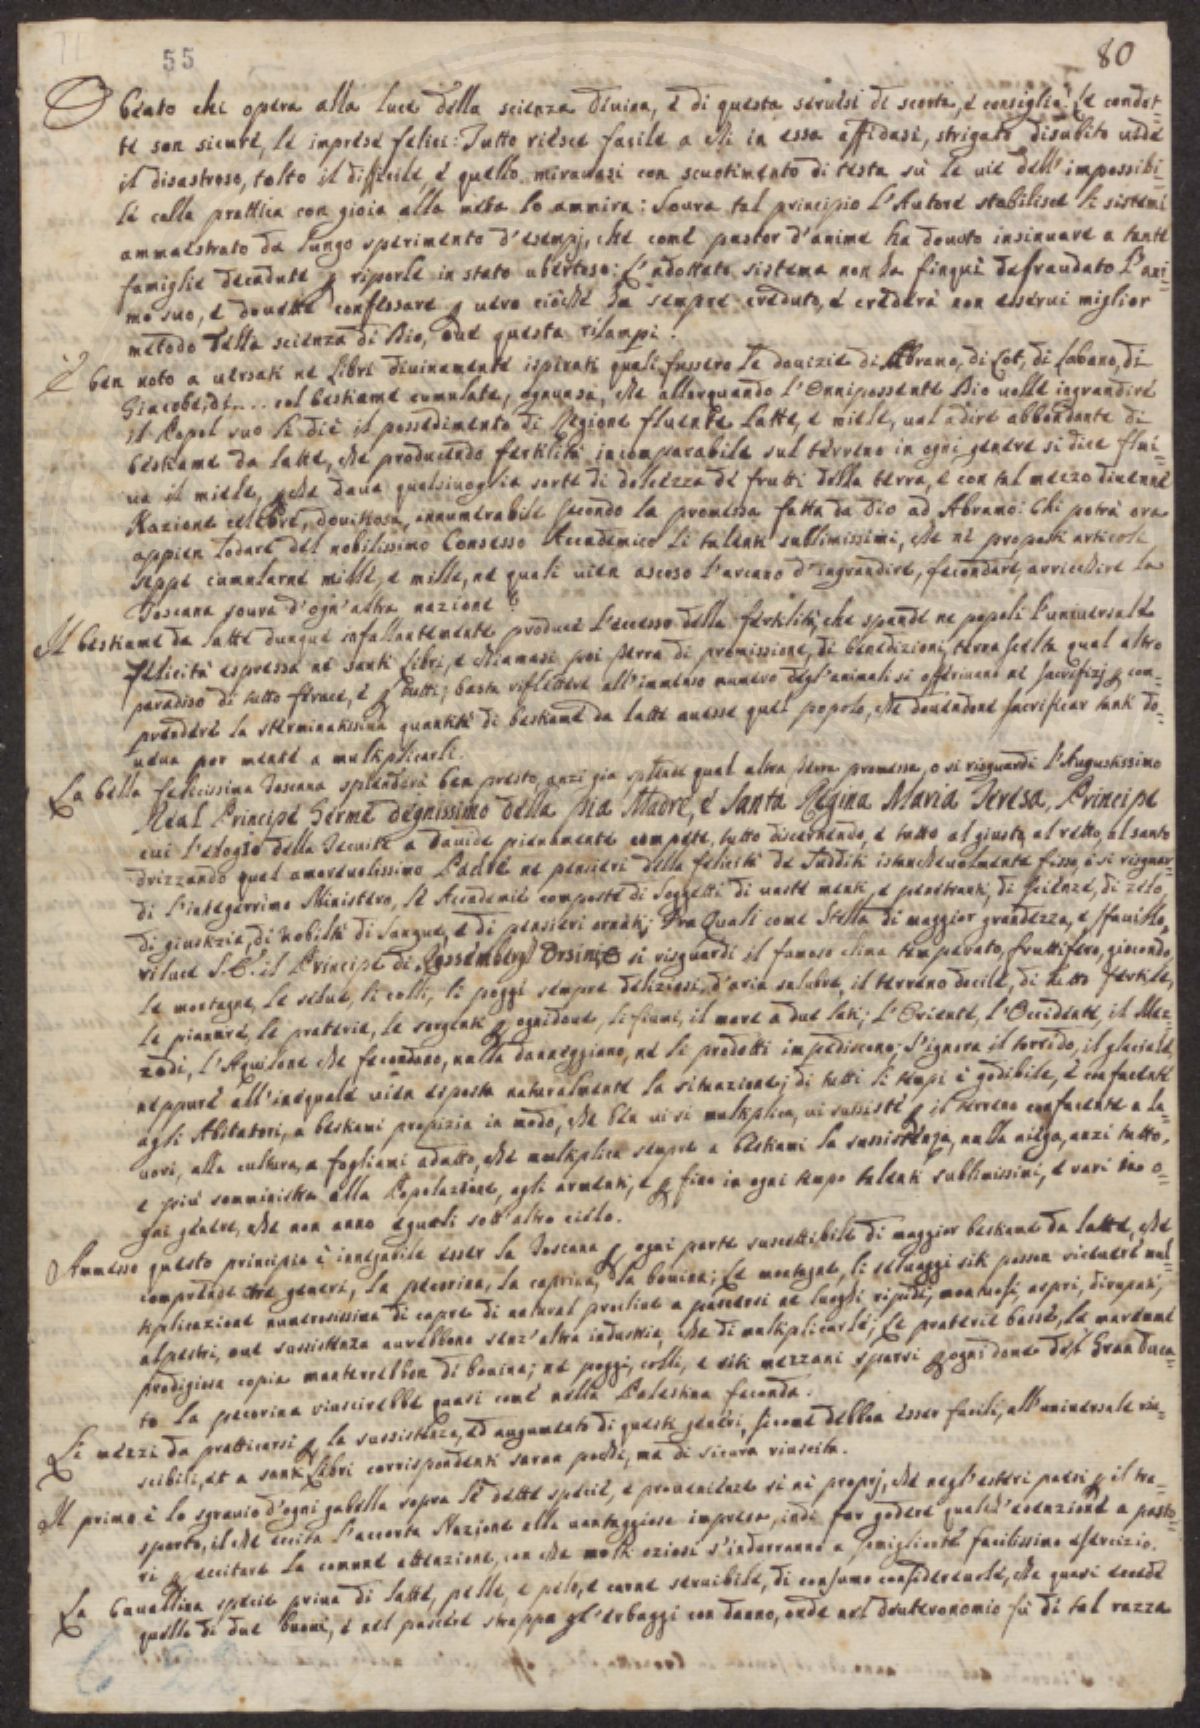 55
80
O beato chi opera alla luce della scienza divina, e di questa servesi di scorta, e consiglia! Le condot=
te son sicure, le imprese felici: Tutto riesce facile a chi in essa affidasi, strigato disubito vede
il disastroso, tolto il difficile, e quello miravasi con scuotimento di testa sù le vie dell'impossibi=
le colla prattica con gioia alla meta lo ammira: Sovra tal principio l'Autore stabilisce li sistemi
ammaestrato da lungo sperimento d'esempj, che come pastor d'anime ha dovuto insinuare a tante
famiglie decadute p riporle in stato ubertoso: L'adottato sistema non ha finquì defraudato l'ani=
mo suo, e dovette confessare p vero ciòchè ha sempre creduto, e crederà non esservi miglior
metodo della scienza di Dio, ove questa rilampi.
È ben noto a versati ne Libri divinamente ispirati quali fussero le dovizie di Abramo, di Lot, di Labano, di
Giacobe, di .... col bestiame cumulate, ognunsa, che allorquando l'Onnipossente Dio volle ingrandire
il Popol suo li diè il possedimento di Regione fluente latte, e miele, val adire abbondante di
bestiame da latte, che producendo fertilità incomparabile sul terreno in ogni genere si dice flui=
va il miele, pche dava qualsivoglia sorte di dolcezza de frutti della terra, e con tal mezzo divenne
Nazione celebre, doviziosa, innumerabile secondo la promessa fatta da Dio ad Abramo: Chi potrà ora
appien lodare del nobilissimo Consesso Accademico li talenti sublimissimi, che ne proposti articoli
seppe cumularne mille, e mille, ne quali vien ascoso l'arcano d'ingrandire, fecondare, arricchire la
Toscana sovra d'ogn'altra nazione?
Il bestiame da latte dunque infallantemente produce l'eccesso della fertilità, che spande ne popoli l'universale
felicità espressa ne santi Libri, e chiamasi poi terra di promissione, di benedizioni, terra scelta qual altro
paradiso di tutto ferace, e p tutti; basta riflettere all'immenso numero degl'animali si offerivano ne sacrifizj p com=
prendere la sterminatissima quantità di bestiame da latte avesse quel popolo, che dovendone sacrificar tanti do=
veva por mente a multiplicarli.
La bella felicissima Toscana splenderà ben presto, anzi già splende qual altra terra promessa, o si risguardi l'Augustissimo
Real Principe Germe dignissimo della pia Madre, e Santa Regina Maria Teresa, Principe
cui l'elogio della Tecuite a Davide pienamente compete, tutto discernendo, e tutto al giusto, al retto, al santo
drizzando qual amorevolissimo Padre ne pensieri della felicità de Sudditi istancabilmente fisso, o si risguar=
di l'integerrimo Ministero, le Accademie composte di Soggetti di vaste menti, e penetranti, di scienze, di zelo,
di giustizia, di nobiltà di Sangue, e di pensieri ornati; Fra Quali come Stella di maggior grandezza, e sfavillo,
riluce S. E. il Principe di Rossemberg Orsini; o si risguardi il famoso clima temperato, fruttifero, giocondo,
le montagne, le selve, li colli, li poggi sempre deliziosi, d'aria salubre, il terreno docile, di tutto fertile,
le pianure, le praterie, le sorgenti p ognidove, li fiumi, il mare a due lati; l'Oriente, l'Occidente, il Mez=
zodi, l'Aquilone che fecondano, nulla danneggiano, ne li prodotti impediscono; S'ignora il torrido, il glaciale,
neppure all'inequale vien esposta naturalmente la situazione; di tutti li tempi è godibile, e confacente
agli Abitatori, a bestiami propizia in modo, che ben vi si multiplica, vi sussiste p il terreno confacente a la=
vori, alla cultura, a fogliami adatto, che multiplica sempre a bestiami la sussistenza, nulla niega, anzi tutto,
e più somministra alla Popolazione, agli armenti, e p fino in ogni tempo talenti sublimissimi, e rari ino o=
gni genere, che non anno eguali sott'altro cielo.
Ammesso questo principio è innegabile esser la Toscana p ogni parte suscettibile di maggior bestiame da latte, che
comprende tre generi, la pecorina, la caprina, la bovina; Le montagne, li selvaggi siti posson ricevere mul=
tiplicazione numerosissima di capre di natural proclive a pascersi ne luoghi ripidi, montuosi, aspri, dirupati,
alpestri, ove sussistenza aurebbono senz'altra industria, che di multiplicarle; Le praterie basse, le maremme
prodigiosa copia manterrebbon di bovina; ne poggi, colli, e siti mezzani sparsi p ogni dove del Gran Duca=
to la pecorina riuscirebbe quasi come nella Palestina feconda.
Li mezzi da pratticarsi p la sussistenza, ed augumento di questi generi, siccome debbon esser facili, all'universale riu=
scibili, et a santi Libri corrispondenti saran pochi, ma di sicura riuscita.
Il primo è lo sgravio d'ogni gabella sopra le dette specie, e provenienze si ne proprj, che negl'esteri paesi p il tra=
sporto, il che eccita l'accorta Nazione alla vantaggiosa impresa, indi far godere qualch'esenzione a pasto=
ri p eccitare la comune attenzione, con che molti oziosi s'indurranno a somigliante facilissimo esercizio.
La cavallina specie priva di latte, pelle, e pelo, e carne servibile, di consumo considerevole, che quasi eccede
quello di due buovi, e nel pascere strappa gl'erbaggi con danno, onde nel deuteronomio fù di tal razza